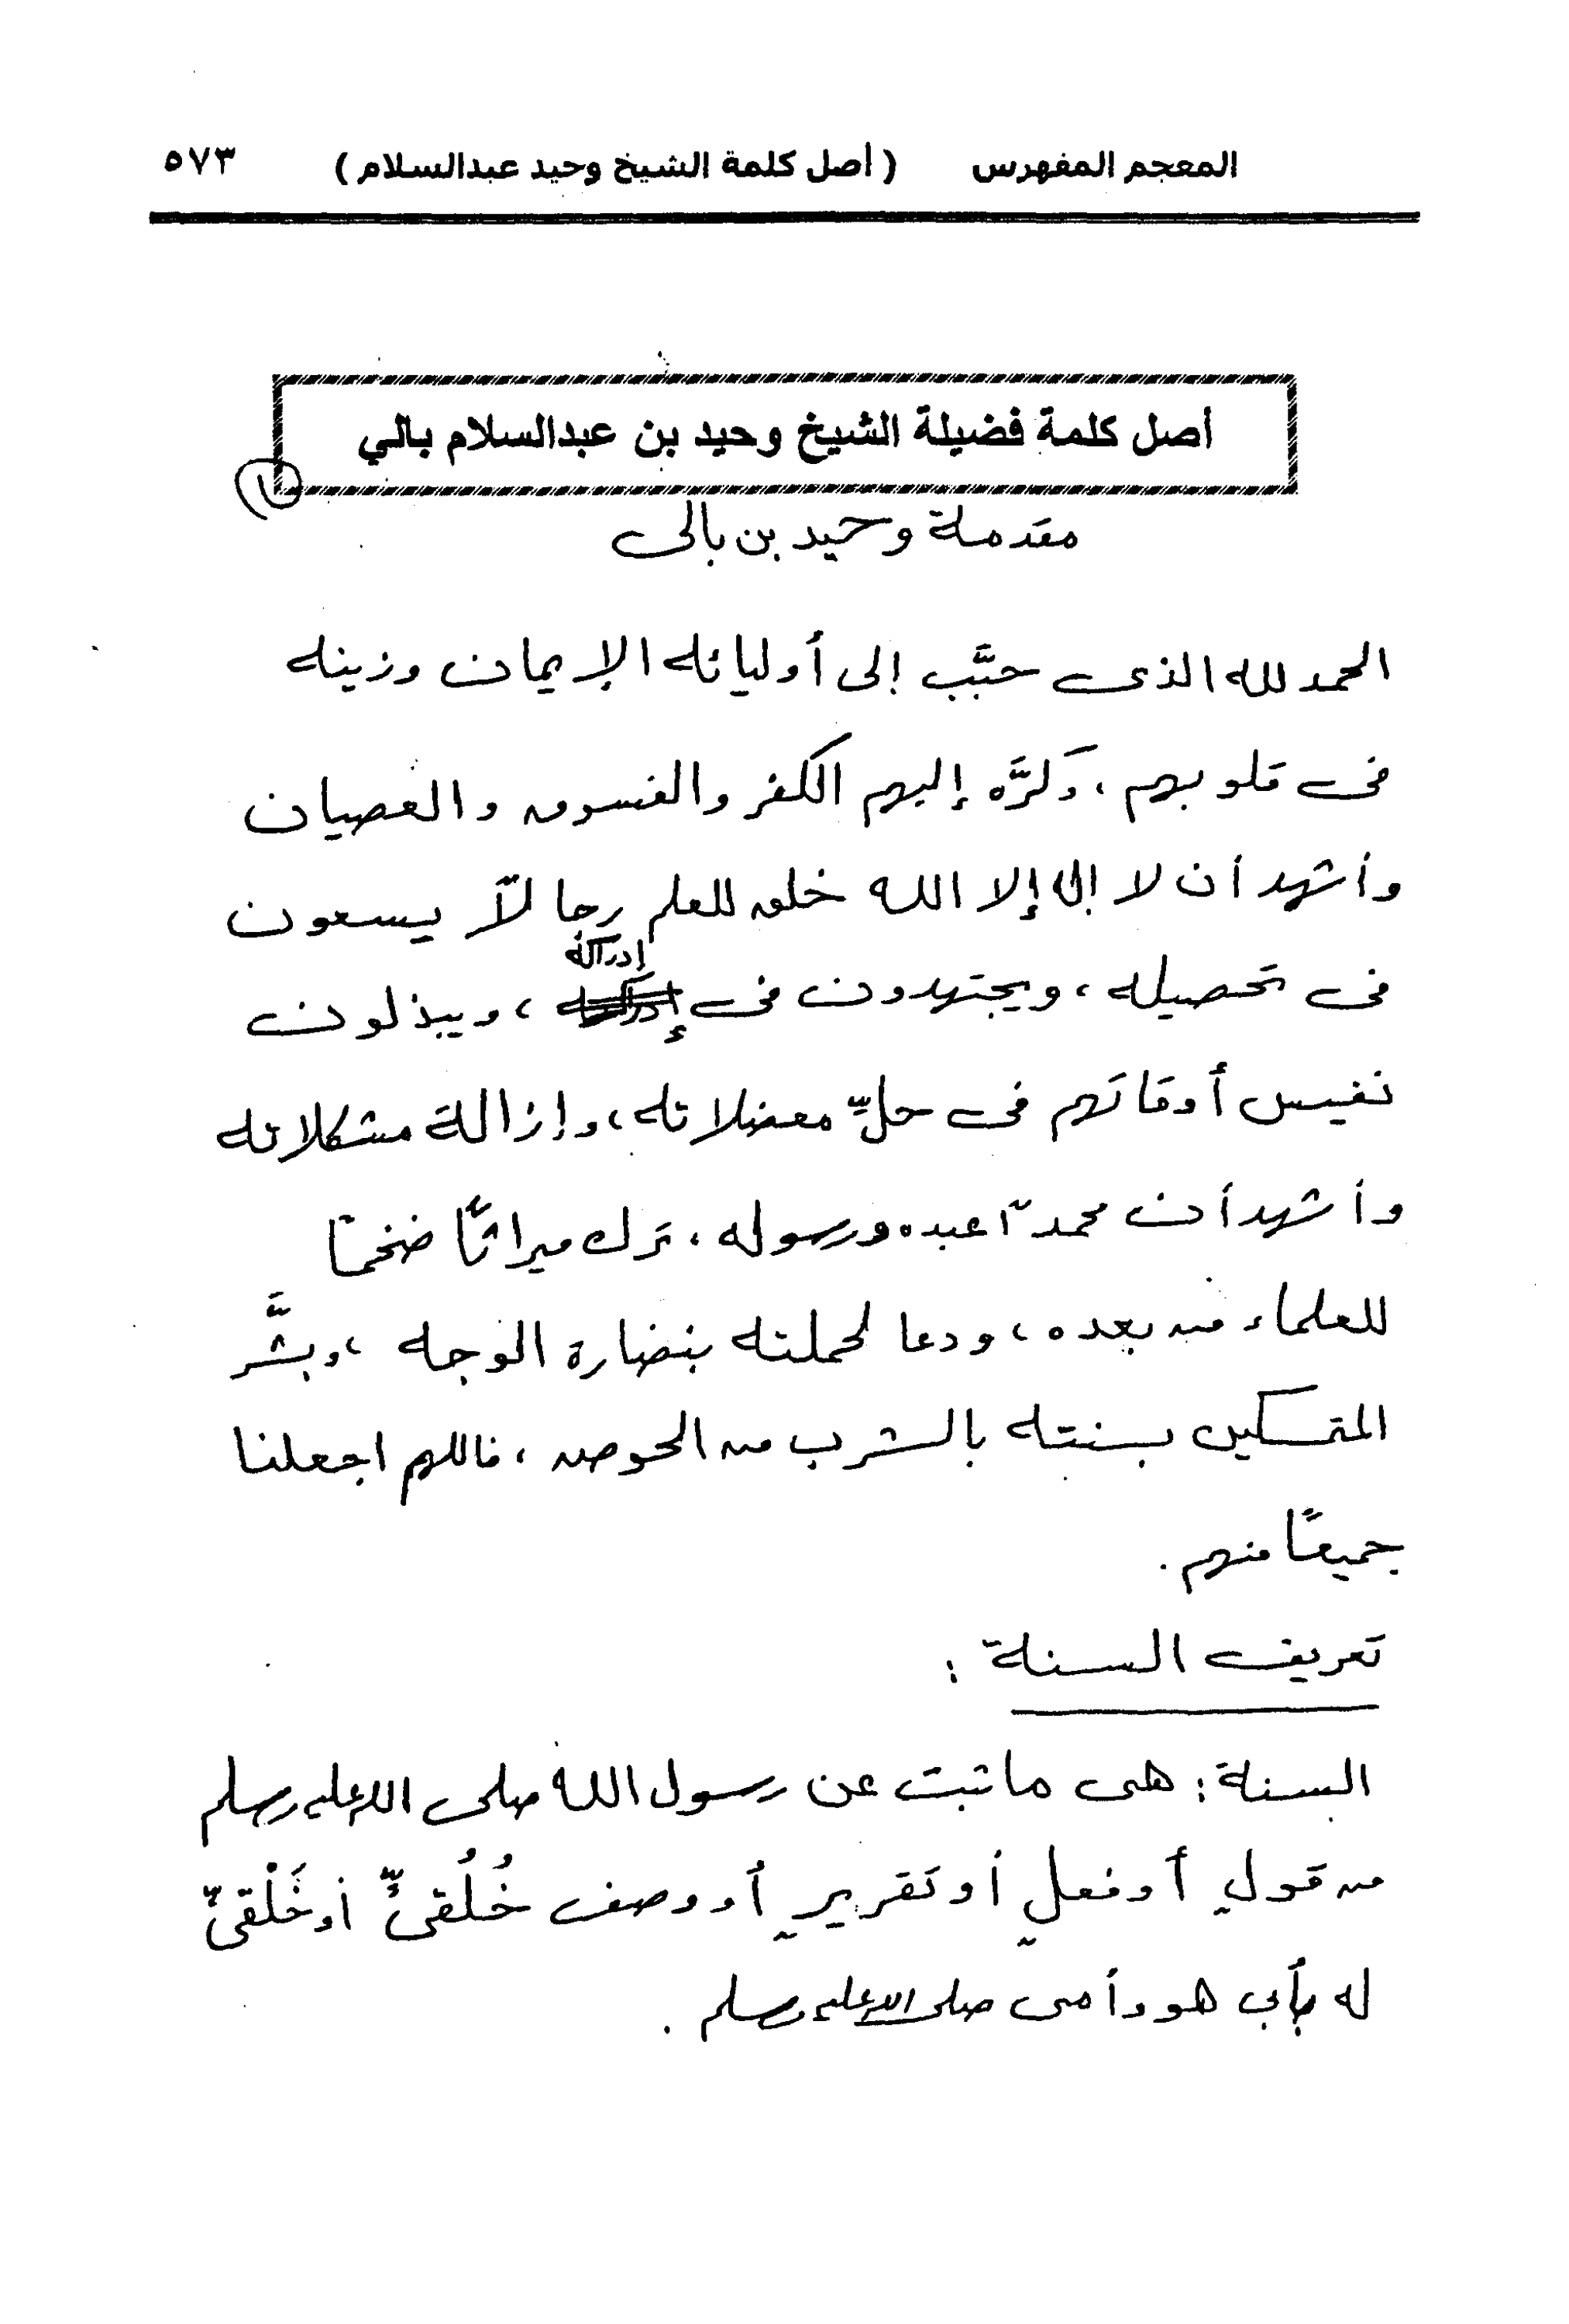 المعجم المفهرس (أصل كلمة الشيخ وحيد عبدالسلام) ٥٧٣
أصل كلمة فضيلة الشيخ وحيد بن عبدالسلام بالي
١
مقدمة وحيد بن بالى
الحمد لله الذى حبَّب إلى أوليائه الإيمان وزينه
فى قلوبهم، وَكرَّه إليهم الكفر والفسوق والعصيان
وأشهد أن لا إله إلا الله خلق للعلم رجالاً يسعون
فى تحصيله، ويجتهدون فى إدراكه، ويبذلون
نفيس أوقاتهم فى حلِّ معضلاته، وإزالة مشكلاته
وأشهد أن محمداً عبده ورسوله، ترك ميراثاً ضخماً
للعلماء من بعده، ودعا لحملته بنضارة الوجه، وبشَّر
المتمسكين بسنته بالشرب من الحوض، فاللهم اجعلنا
جميعًا منهم.
تعريف السنة:
السنة: هى ما ثبت عن رسول الله صلى الله عليه وسلم
من قولٍ أو فعلٍ أو تقريرٍ أو وصف خُلُقىٍّ أو خَلْقىٍّ
له بأبى هو وأمى صلى الله عليه وسلم.